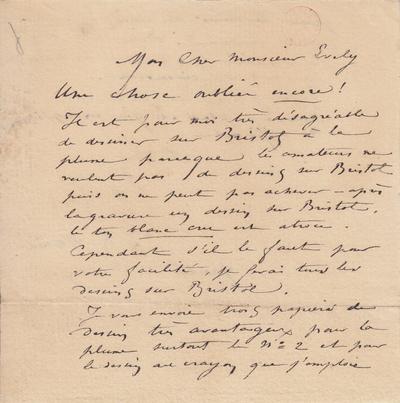 Mon Cher Monsieur
Une chose oubliée encore !
Il est pour moi très désagréable
de dessiner sur Bristol à la
plume parceque les amateurs ne
veulent pas de dessins sur Bristol
puis on ne peut pas achever – après
la gravure un dessin sur Bristol,
le ton blanc cru est atroce.
Cependant s'il le faut pour
votre facilité, je ferai tous les
dessins sur Bristol.
Je vous envoie trois papiers de
dessin très avantageux pour la
plume surtout le No 2 et pour
le dessin au crayon que j'emploie